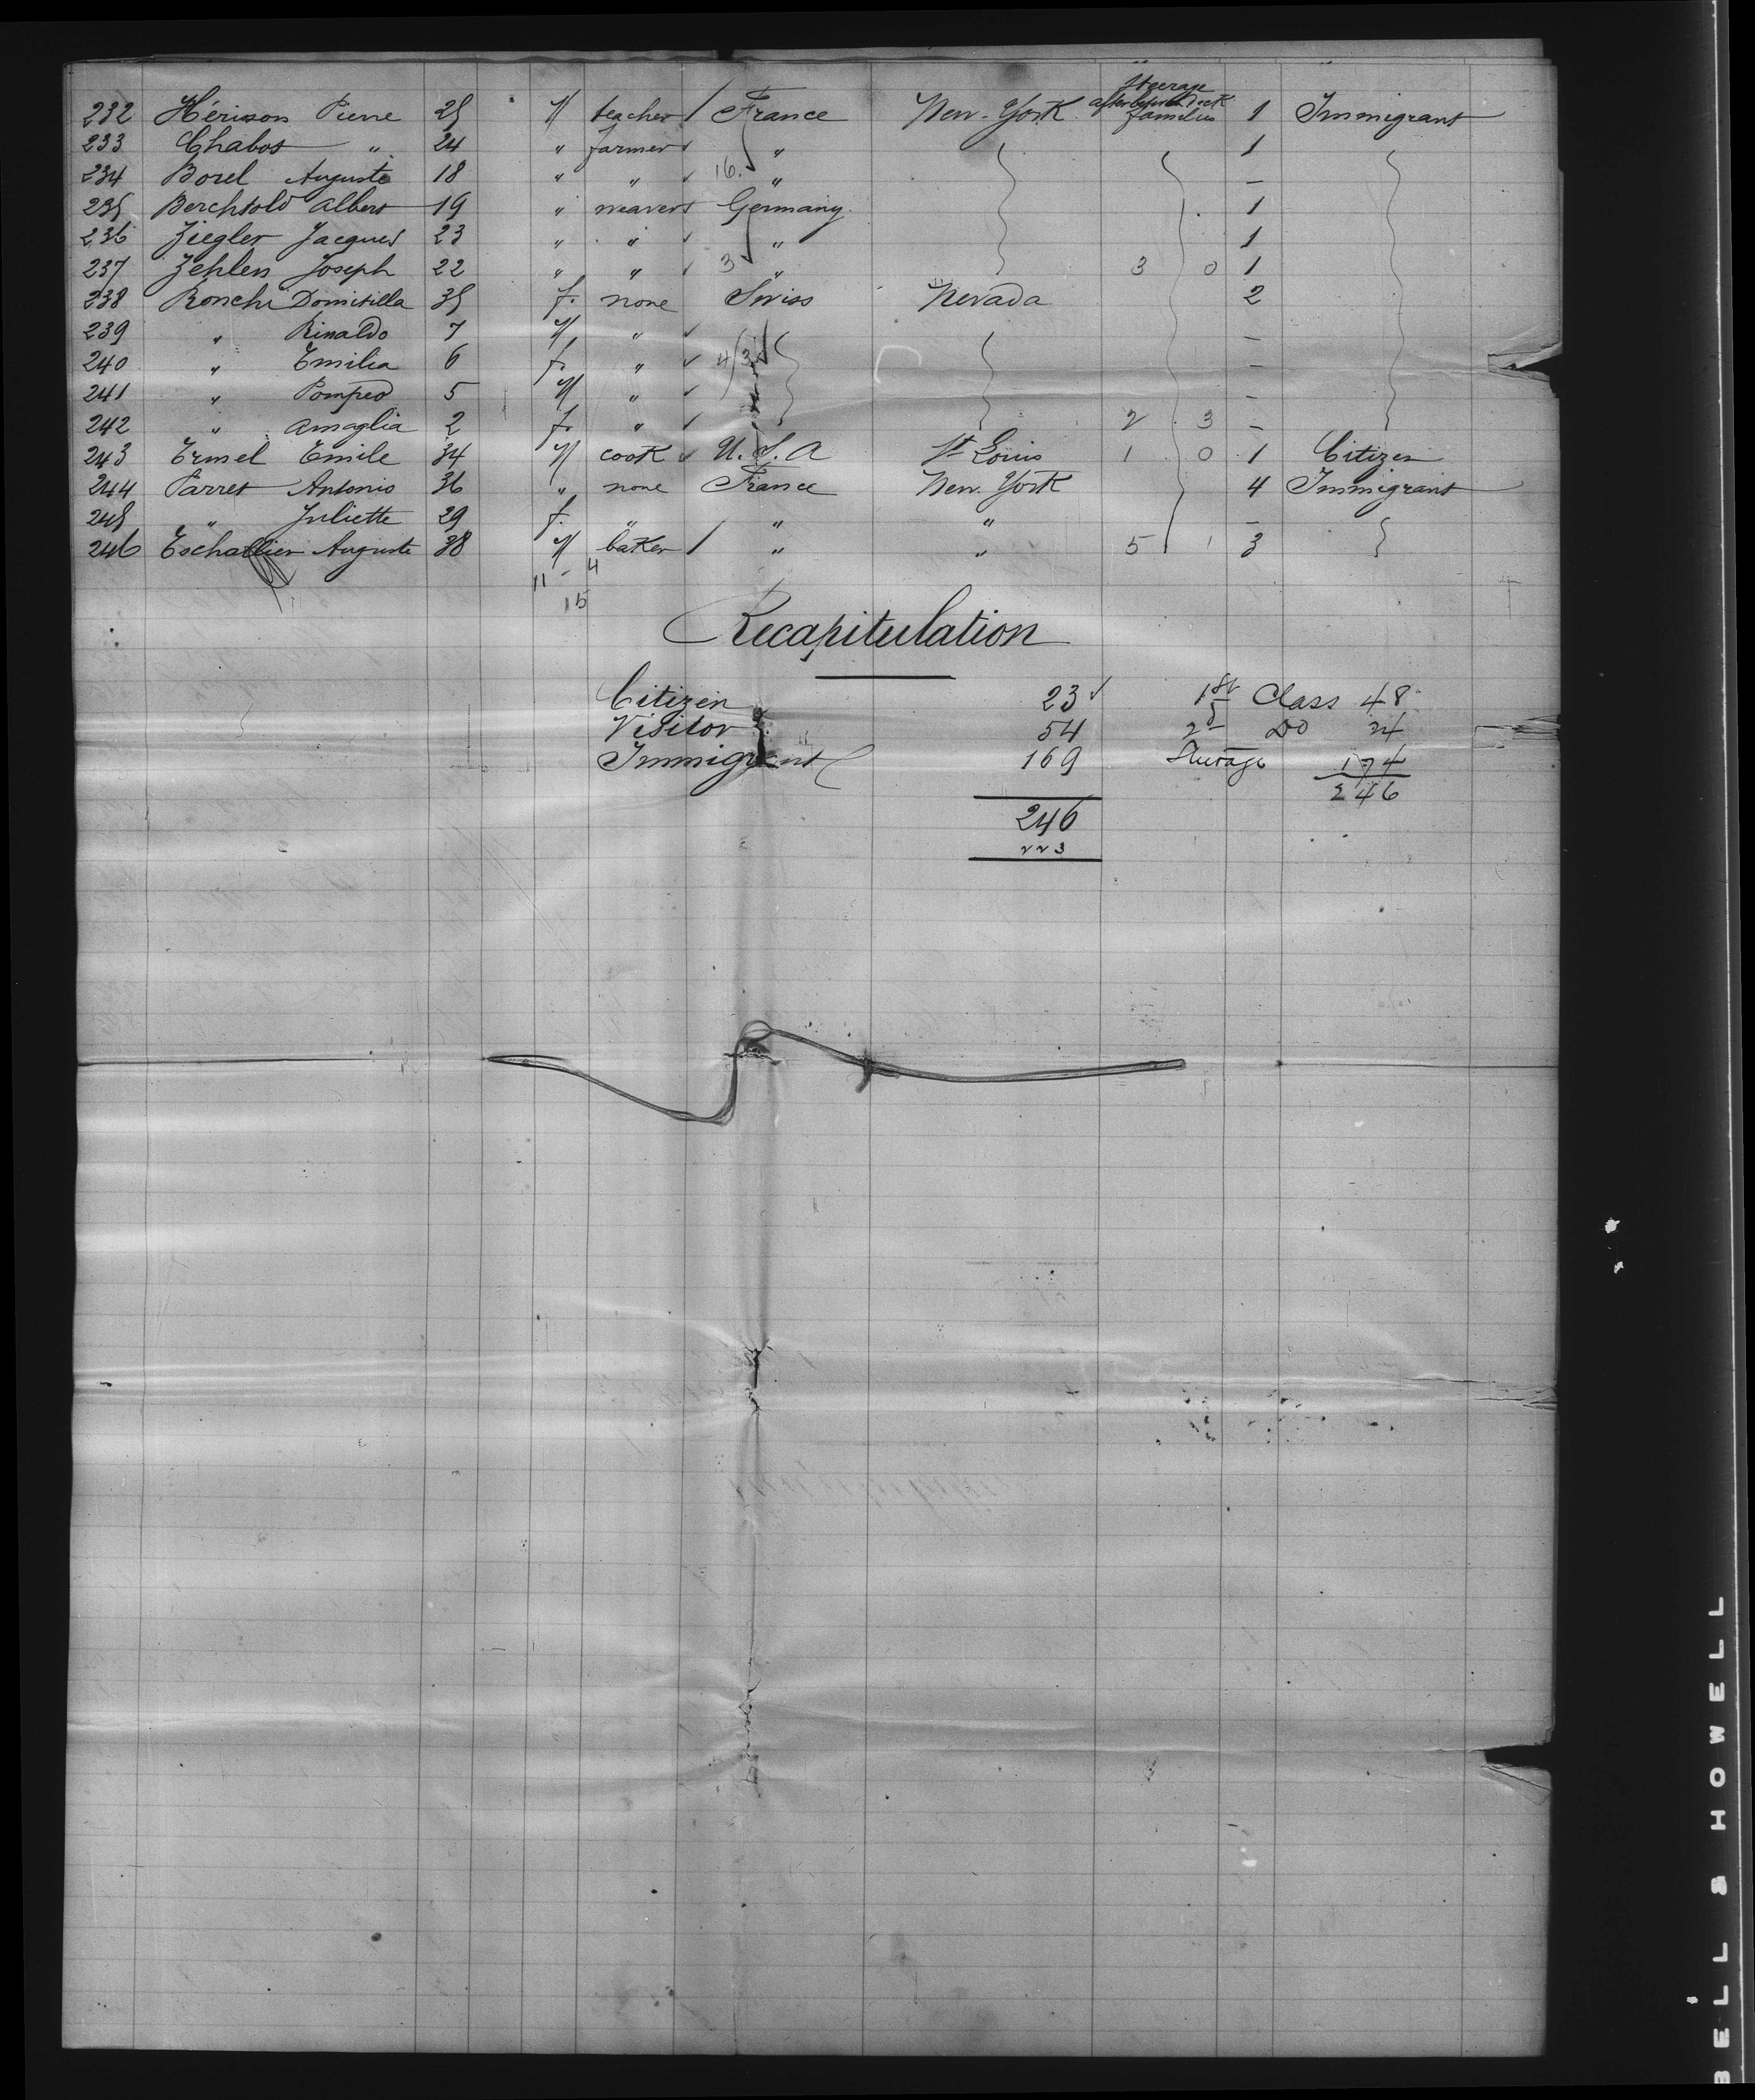 Steerage
232 Hérison Pierre 25 M teacher / France New-York after between Deck families 1 Immigrant
233 Chabos " 24 " farmer " 1
234 Borel Auguste 18 " " 16 " –
235 Berchtold Albert 19 " weaver Germany 1
236 Ziegler Jacques 23 " " " 1
237 Zehlen Joseph 22 " " 3 " 3 0 1
238 Ronchi Domitilla 35 f. none Swiss Nevada 2
239 " Rinaldo 7 M " –
240 " Emilia 6 f. " 4/3 –
241 " Pompeo 5 M " –
242 " Amaglia 2 f. " 2 3 –
243 Ermel Emile 34 M cook U.S.A St Louis 1 0 1 Citizen
244 Parret Antonio 36 " none France New-York 4 Immigrant
245 " Juliette 29 f. " " " –
246 Eschallier Auguste 38 M baker / " " 5 1 3
11 - 4
15
Recapitulation
Citizen 23 1st Class 48
Visitor 54 2d Do 24
Immigrant 169 Steerage 174
246
246
223
BELL & HOWELL